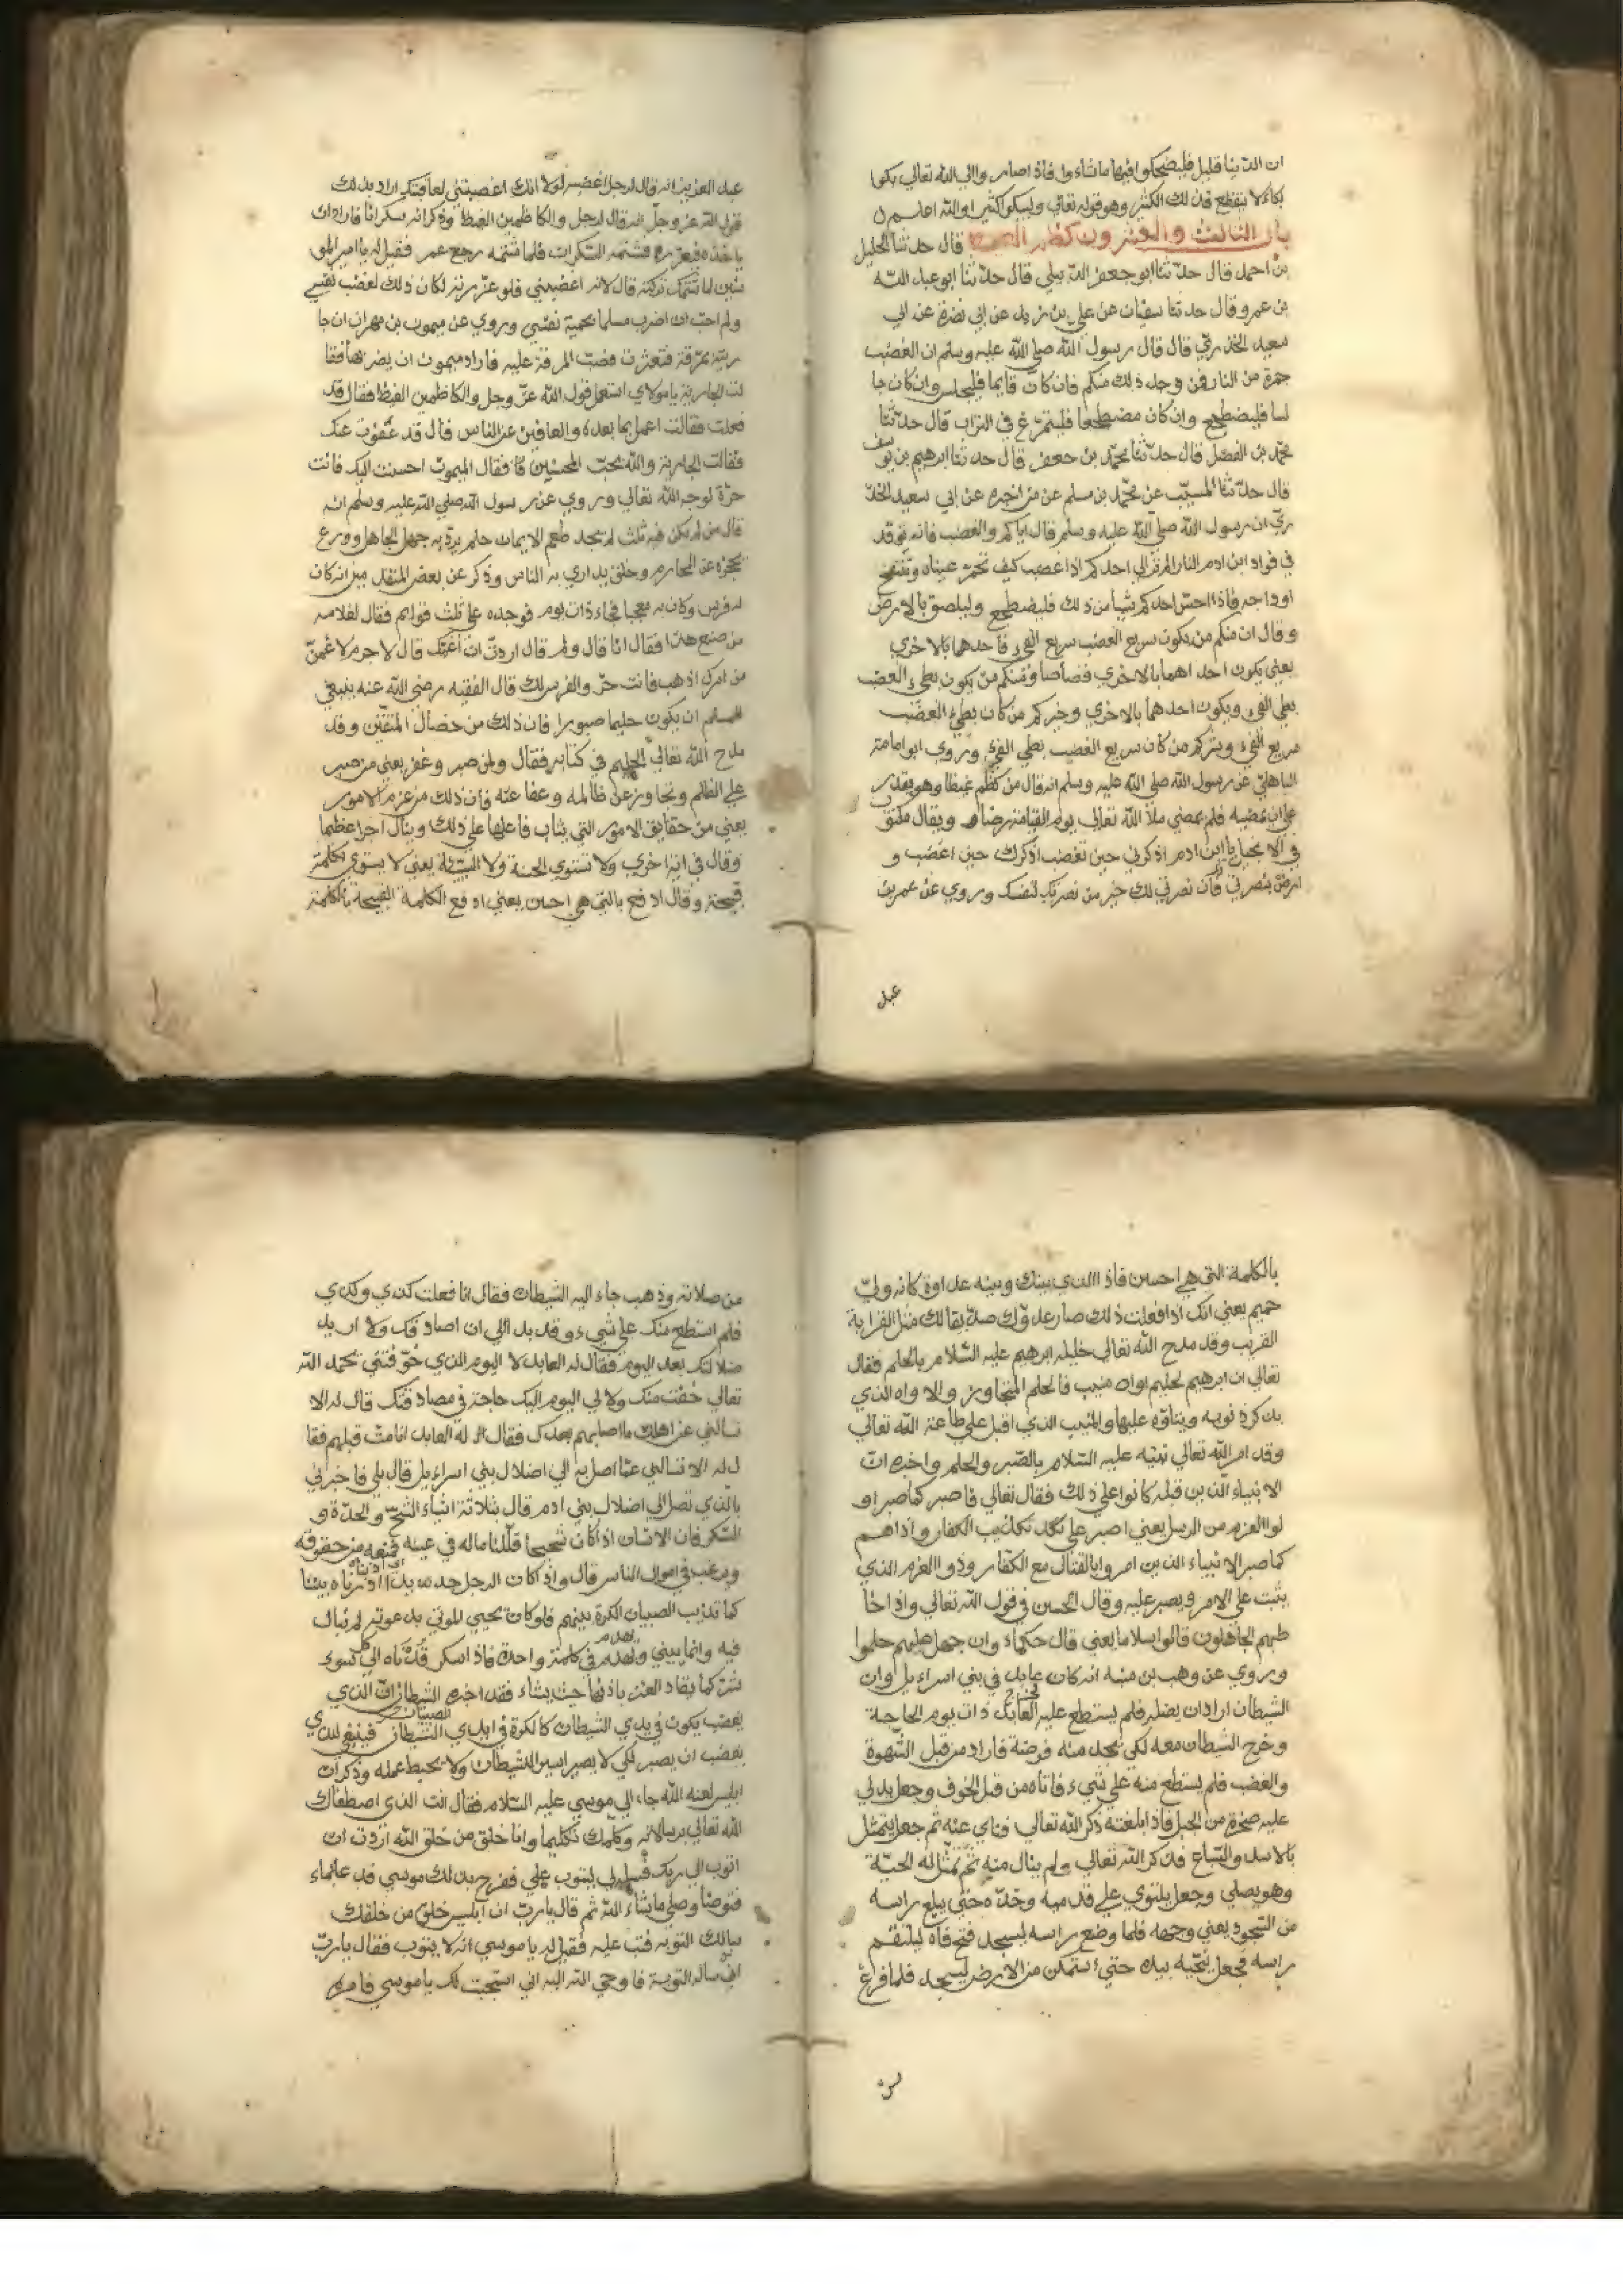 ان الدنيا قليل فليضحكوا فيها ماشاء وا فاذا صاروا الي الله تعالي بكوا
بكاء لا ينقطع فذلك الكثير وهو قوله تعالي وليبكوا كثيرا والله اعلم
باب الثالث والعشرون كظم الغيظ قال حدثنا الخليل
بن احمد قال حدثنا ابو جعفر الدبيلي قال حدثنا ابو عبد الله
بن عمرو قال حدثنا سفيان عن علي بن زيد عن ابي نضرة عن ابي
سعيد الخدري قال قال رسول الله صلي الله عليه وسلم ان الغضب
جمرة من النار فمن وجد ذلك منكم فان كان قايما فليجلس وان كان جا
لسا فليضطجع وان كان مضطجعا فليتمرغ في التراب قال حدثنا
محمد بن الفضل قال حدثنا محمد بن جعفر قال حدثنا ابرهيم بن يوسف
قال حدثنا المسيب عن محمد بن مسلم عن من اخبره عن ابي سعيد الخد
ري ان رسول الله صلي الله عليه وسلم قال اياكم والغضب فانه يوقد
في فواد ابن ادم النار الم تر الي احدكم اذا غضب كيف تحمر عيناه وتنتفخ
اوداجه فاذا احس احدكم شيأ من ذلك فليضطجع وليلصق بالارض
وقال ان منكم من يكون سريع الغضب سريع الفيء فاحدهما بالاخري
يعني يكون احداهما بالاخري قصاصا ومنكم من يكون بطيء الغضب
بطي الفيء ويكون احدهما بالاخري وخيركم من كان بطيء الغضب
سريع الفيء وشركم من كان سريع الغضب بطي الفيء وروي ابو امامة
الباهلي عن رسول الله صلي الله عليه وسلم انه قال من كظم غيظا وهو يقدر
علي ان يمضيه فلم يمضي ملأ الله تعالي يوم القيامة رضا ويقال مكتوب
في الانجيل يا ابن ادم اذكرني حين تغضب اذكرك حين اغضب و
ارض بنصرتي فان نصرتي لك خير من نصرتك لنفسك وروي عن عمر بن
عبد
عبد العزيز انه قال لرجل اغضبه لولا انك اغضبتني لعاقبتك اراد بذلك
قول الله عز وجل انه قال لرجل والكاظمين الغيظ وذكر انه سكرانا فاراد ان
ياخذه فيعزره فشتمه السكران فلما شتمه رجع عمر فقيل له يا امير المو
منين لما شتمك تركته قال لانه اغضبني فلو عزرته لكان ذلك لغضب لنفسي
ولم احب ان اضرب مسلما لحمية نفسي وروي عن ميمون بن مهران ان جا
ريته بمرقة فتعثرت فصبت المرقة عليه فاراد ميمون ان يضربها فقا
لت الجارية يا مولاي استعمل قول الله عز وجل والكاظمين الغيظ فقال قد
فعلت فقالت اعمل بما بعده والعافين عن الناس قال قد عفوت عنك
فقالت الجارية والله يحب المحسنين فقال الميمون احسنت اليك فانت
حرة لوجه الله تعالي وروي عن رسول الله صلي الله عليه وسلم انه
قال من لم يكن فيه ثلث لم يجد طعم الايمان حلم يرد به جهل الجاهل وورع
يحجزه عن المحارم وخلق يداري به الناس وذكر عن بعض المتقدمين انه كان
له فرس وكان به معجبا فجاء ذات يوم فوجده علي ثلث قوايم فقال لغلامه
من صنع هذا فقال انا قال ولم قال اردت ان اغمك قال لا جرم لاغمن
من امرك اذهب فانت حر والفرس لك قال الفقيه رضي الله عنه ينبغي
للمسلم ان يكون حليما صبورا فان ذلك من خصال المتقين وقد
مدح الله تعالي الحليم في كتابه فقال ولمن صبر وغفر يعني من صبر
علي الظلم وتجاوز عن ظالمه وعفا عنه فان ذلك من عزم الامور
يعني من حقايق الامور التي يثاب فاعلها علي ذلك وينال اجرا عظيما
وقال في اية اخري ولا تستوي الحسنة ولا السيئة يعني لا يستوي كلمة
قبيحة وقال ادفع بالتي هي احسن يعني ادفع الكلمة القبيحة بالكلمة
بالكلمة التي هي احسن فاذا الذي بينك وبينه عداوة كانه ولي
حميم يعني انك اذا فعلت ذلك صار عدوك صديقا لك مثل القرابة
القريب وقد مدح الله تعالي خليله ابرهيم عليه السلام بالحلم فقال
تعالي ان ابرهيم لحليم اواه منيب فالحلم المتجاوز والاواه الذي
يذكر ذنوبه ويتاوه عليها والمنيب الذي اقبل علي طاعة الله تعالي
وقد امر الله تعالي نبيه عليه السلام بالصبر والحلم واخبره ان
الانبياء الذين قبله كانوا علي ذلك فقال تعالي فاصبر كما صبر او
لوا العزم من الرسل يعني اصبر علي تكذيب الكفار واذاهم
كما صبر الانبياء الذين امروا بالقتال مع الكفار وذو العزم الذي
يثبت علي الامر ويصبر عليه وقال الحسن في قول الله تعالي واذا خا
طبهم الجاهلون قالوا سلاما يعني قال حكماء وان جهل عليهم حلموا
وروي عن وهب بن منبه انه كان عابد في بني اسراءيل وان
الشيطان اراد ان يضله فلم يستطع عليه فخرج العابد ذات يوم الحاجة
وخرج الشيطان معه لكي يجد منه فرصة فاراد من قبل الشهوة
والغضب فلم يستطع منه علي شيء فاتاه من قبل الخوف وجعل يدلي
عليه صخرة من الجبل فاذا بلغته ذكر الله تعالي فناي عنه ثم جعل يتمثل
بالاسد والسباع فذكر الله تعالي ولم ينال منه ثم تمثل له الحية
وهو يصلي وجعل يلتوي علي قدميه وخده حتي يبلغ راسه
من السجود يعني وجهه فلما وضع راسه ليسجد فتح فاه ليلتقم
راسه فجعل ينحيه بيده حتي استمكن من الارض ليسجد فلما فرغ
من
من صلاته وذهب جاء اليه الشيطان فقال انا فعلت كذي وكذي
فلم استطع منك علي شيء وقد بدا لي ان اصادقك ولا اريد
ضلالتك بعد اليوم فقال له العابد لا اليوم الذي خوفتني بحمد الله
تعالي خفت منك ولا لي اليوم اليك حاجة في مصادقتك قال له الا
تسالني عن اهلك ما اصابهم بعدك فقال له العابد انا مت قبلهم فقا
ل له الا تسالني عما اصل به الي اضلال بني اسراءيل قال بلي فاخبرني
بالذي تصل الي اضلال بني ادم قال بثلاثة اشياء الشح والحدة و
السكر فان الانسان اذا كان شحيحا قللنا ماله في عينه فيمنعه من حقوقه
ويرغب في اموال الناس قال واذا كان الرجل حديدا ادرناه بيننا
كما تديرب الصبيان الكرة بينهم فلو كان يحيي الموتي بدعوته لم نبال
فيه وانما يبني ونهدم في كلمة واحدة فاذا سكر قدناه الي كل سوء
شر كما يقاد العنز باذنها حيث يشاء فقد اخبره الشيطان ان الذي
يغضب يكون في يدي الشيطان كالكرة في ايدي الصبيان فينبغي للذي
يغضب ان يصبر لكي لا يصير اسير الشيطان ولا يحبط عمله وذكر ان
ابليس لعنه الله جاء الي موسي عليه السلام فقال انت الذي اصطفاك
الله تعالي برسالاته وكلمك تكليما وانا خلق من خلق الله اردت ان
اتوب الي ربك فسل لي ليتوب علي ففرح بذلك موسي فدعا بماء
فتوضا وصلي ما شاء الله ثم قال يا رب ان ابليس خلق من خلقك
سالك التوبة فتب عليه فقيل له يا موسي انه لا يتوب فقال يا رب
انه سالك التوبة فاوحي الله اليه اني استجبت لك يا موسي فامره